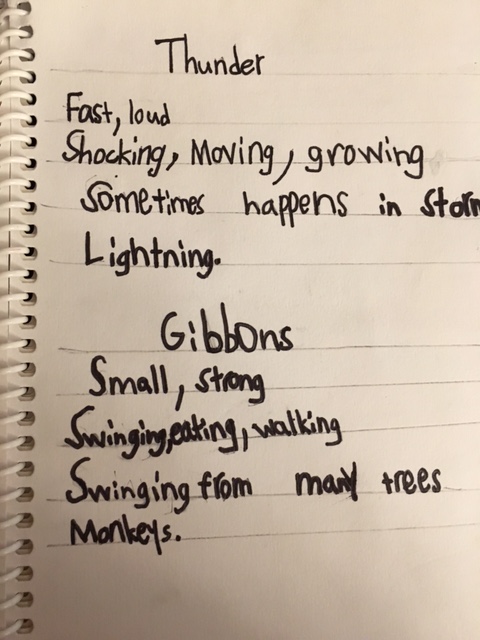 Thunder
Fast, loud
Shocking, Moving, growing
Sometimes happens in
Lightning.
Gibbons
Small, strong
Swinging,eating, walking
Swinging from many trees
Monkeys.